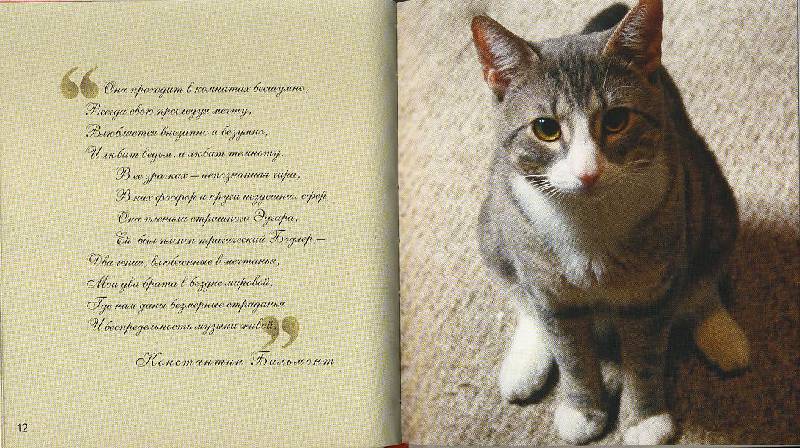 “ Она проходит в комнатах бесшумно,
Всегда свою преследуя мечту,
Влюбляется внезапно и безумно,
И любит ведьм, и любит темноту.
В ее зрачках — непознанная чара,
В них фосфор и круги нездешних сфер.
Она пленила страшного Эдгара,
Ей был пленен трагический Бодлер —
Два гения, влюбленные в мечтанья,
Мои два брата в бездне мировой,
Где нам даны безмерные страданья
И беспредельность музыки живой. ”
Константин Бальмонт
12